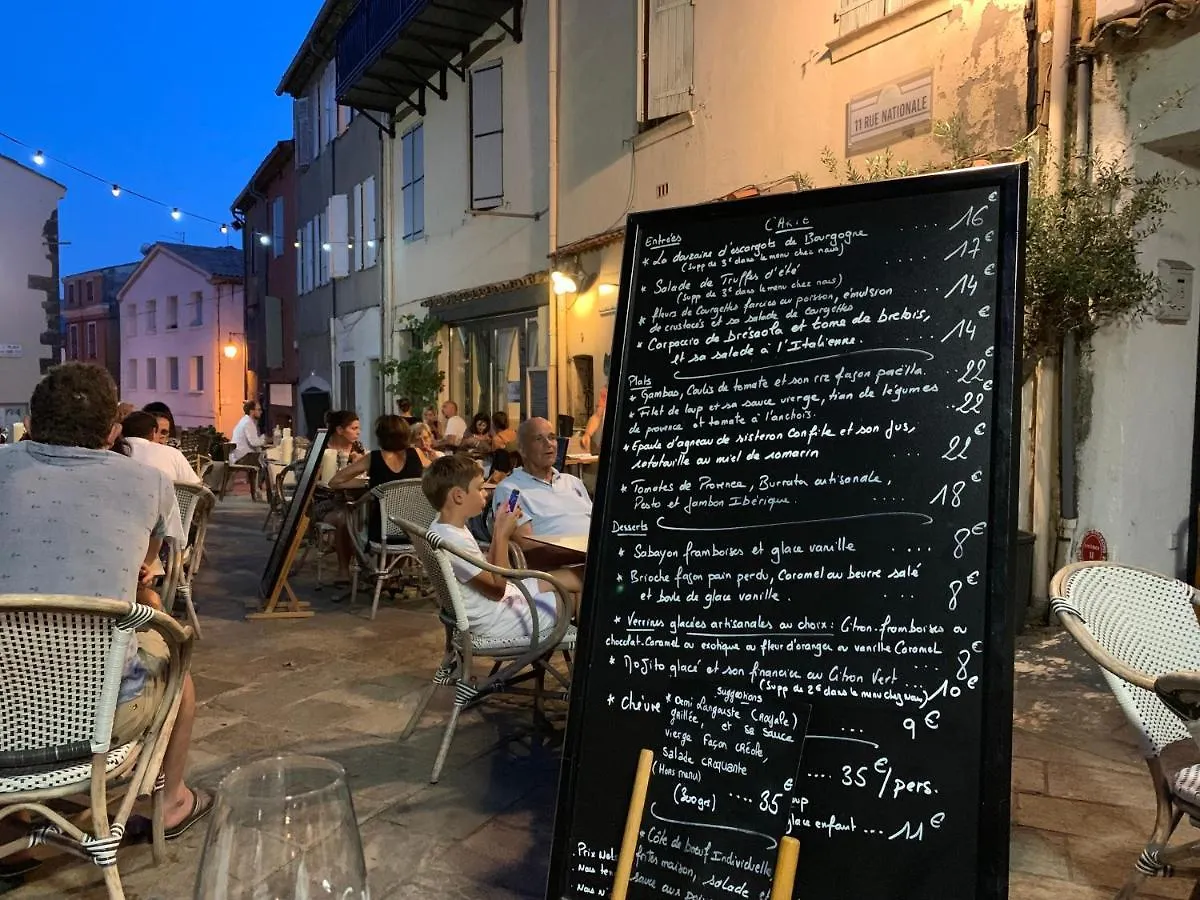 11 RUE NATIONALE
CARTE
Entrées
* La douzaine d'escargots de Bourgogne .... 16€
(supp 3€ dans le menu chez nous)
* Salade de Truffes d'été .... 17€
(supp de 3€ dans le menu)
* fleurs de Courgettes farcies au poisson, émulsion .... 14€
de crustacés et sa salade de Courgettes
* Carpaccio de brésaola et tome de brebis, .... 14€
et sa salade à l'Italienne.
Plats
* Gambas, Coulis de tomate et son riz façon paëlla. 22€
* Filet de loup et sa sauce vierge, tian de légumes .. 22€
de provence et tomate à l'anchois.
* Epaule d'agneau de sisteron Confite et son jus, .... 22€
ratatouille au miel de romarin
* Tomates de Provence, Burrata artisanale, .... 18€
Pesto et Jambon Ibérique.
Desserts
* Sabayon framboises et glace vanille ..... 8€
* Brioche façon pain perdu, Caramel au beurre salé
et boule de glace vanille. .... 8€
Verrines glacées artisanales au choix: Citron-framboises ou
chocolat-Caramel ou exotique ou fleur d'oranger ou vanille Caramel .. 8€
* Mojito glacé et son financier au Citron Vert ....
(Supp de 2€ dans le menu chez nous) 10€
* Chèvre ... 9€
Suggestions
* Demi Langouste (royale)
grillée, et sa sauce
vierge façon créole,
salade croquante
(Hors menu)
(300gr) .... 35
.... 35€/pers.
glace enfant ... 11€
* Côte de boeuf Individuelle
frites maison, salade et
sauce aux
. Prix
. Nous
. Nous